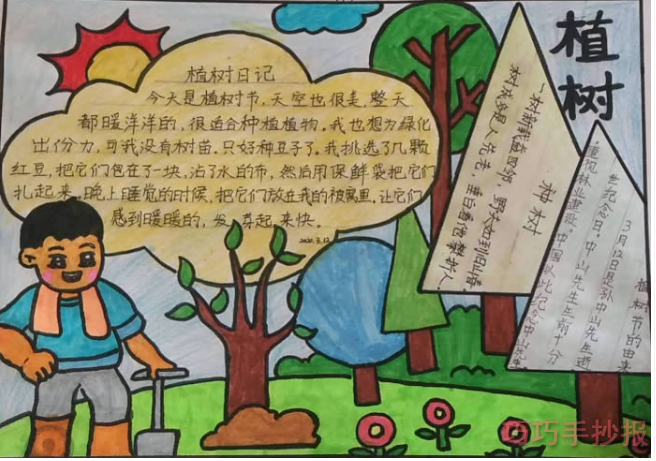 植树
植树日记
今天是植树节，天空也很走，整天
都暖洋洋的，很适合种植植物。我也想为绿化
出份力，可我没有树苗。只好种豆子了。我挑选了几颗
红豆，把它们包在了一块，沾了水的布，然后用保鲜袋把它们
扎起来，晚上睡觉的时候，把它们放在我的被窝里，让它们
感到暖暖的，发 起来快。
2021.3.12
种树
一树新栽益四邻，野夫如到旧山
树成多是人先老，垂白看他攀折人
植树节的由来
3月12日是孙中山先生逝
世纪念日。中山先生生前十分
重视林业建设。中国以此纪念中山先生
巧巧手抄报